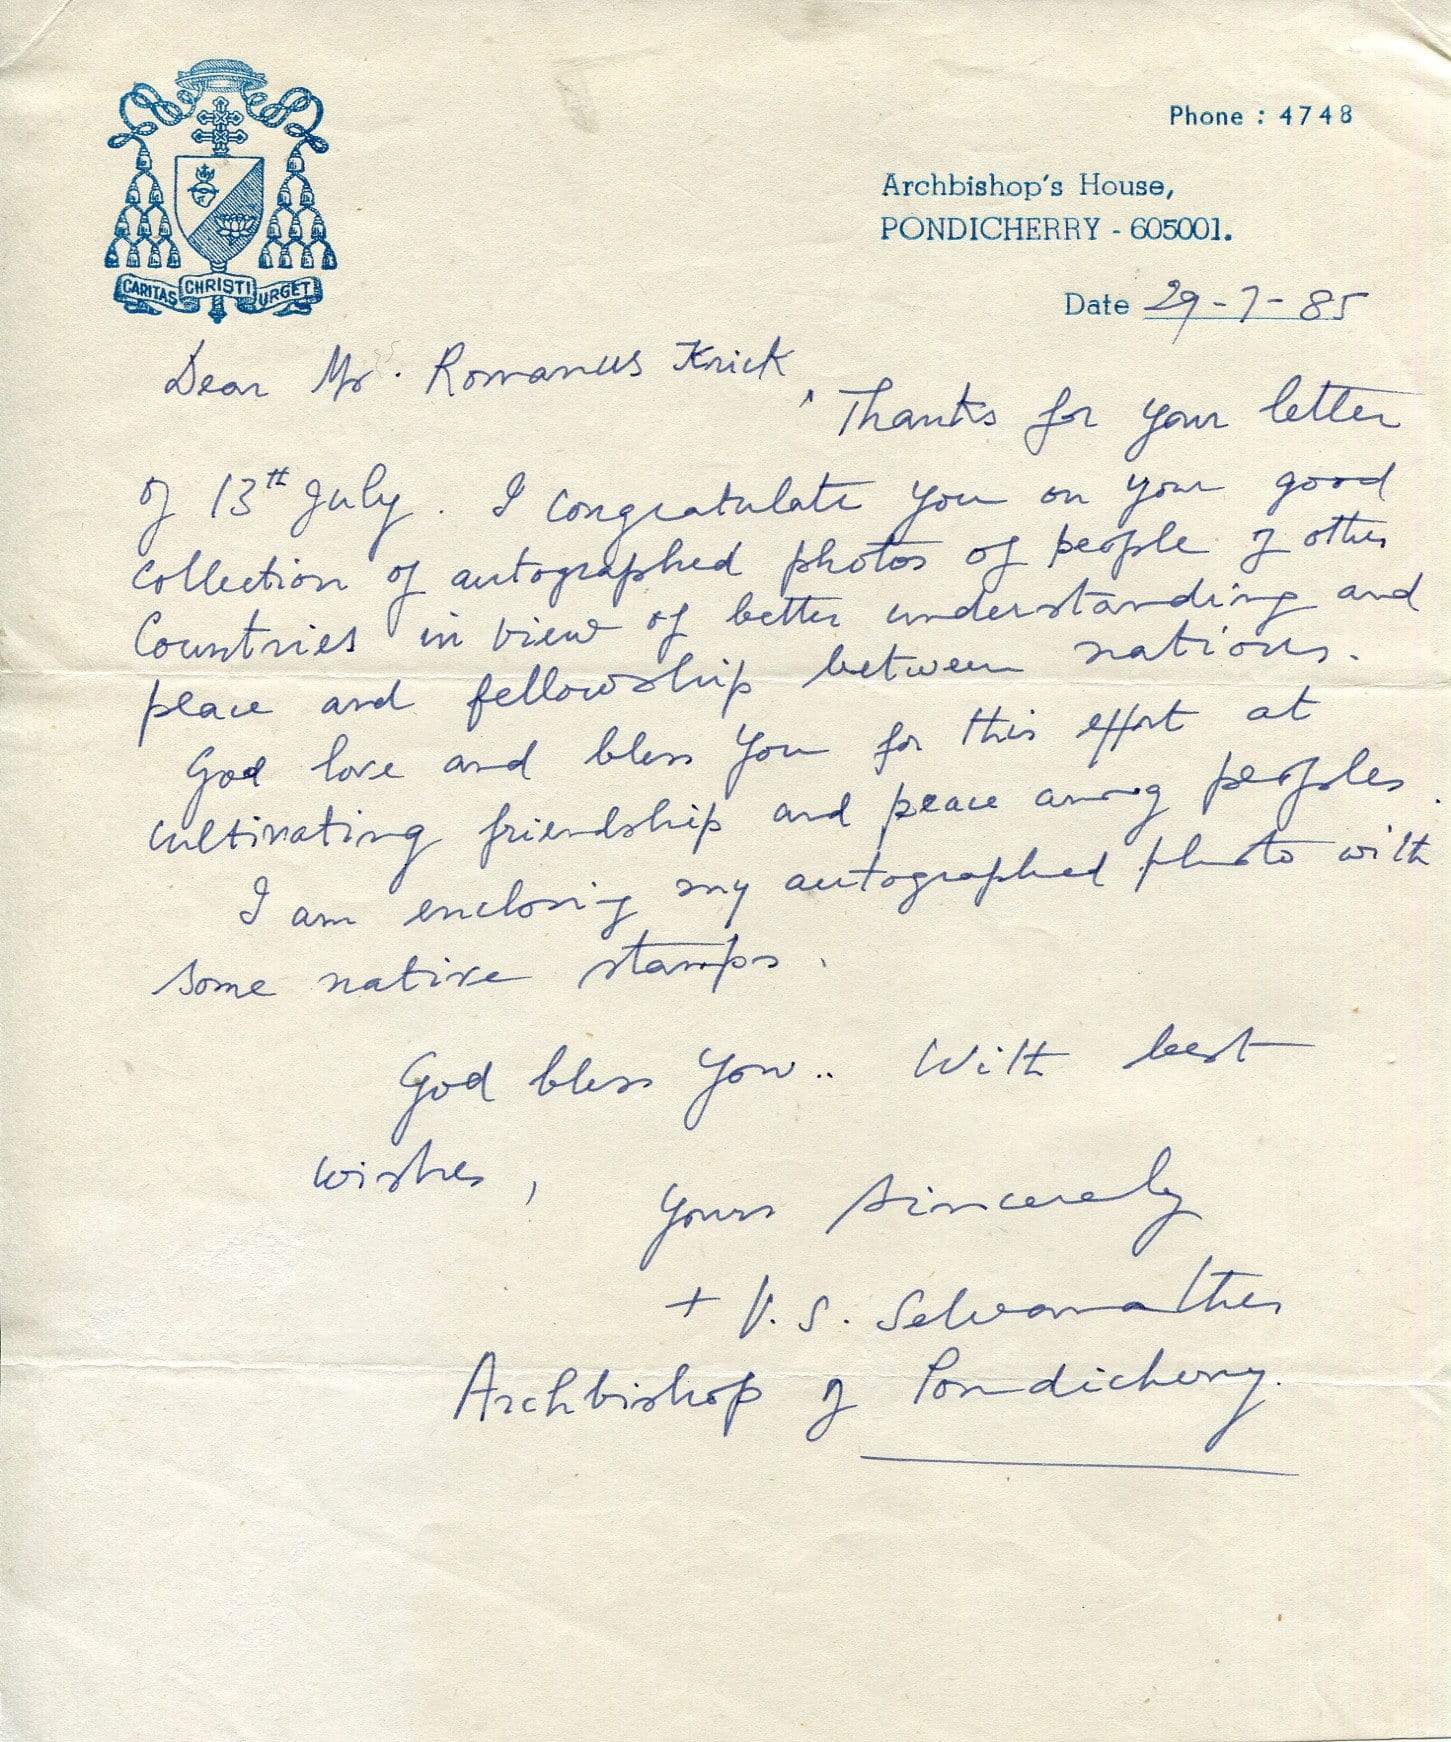 Phone : 4748
Archbishop's House,
PONDICHERRY - 605001.
CARITAS CHRISTI URGET
Date 29-7-85
Dear Mr. Romanus Krick,
Thanks for your letter
of 13th July. I congratulate you on your good
collection of autographed photos of people of other
Countries in view of better understanding and
peace and fellowship between nations.
God love and bless you for this effort at
cultivating friendship and peace among peoples.
I am enclosing my autographed photo with
some native stamps.
God bless you.. With best
wishes,
Yours sincerely
+ V. S. Selvanather
Archbishop of Pondicherry.